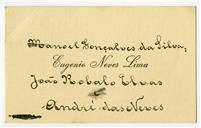 Manoel Gonçalves da Silva,
Eugenio Neves Lima
João Robalo Elvas
André das Neves